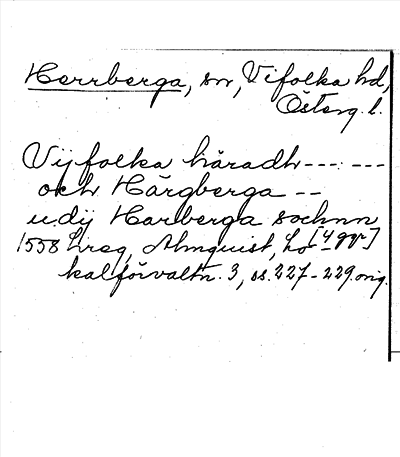 Herrberga, sn, Vifolka hd,
Österg. l.
Vijfolka häradh ---:---
och Härgberga --
u.dij Harberga sochnn
[4 ggr]
1558 Lreg, Almquist, Lo-
kalförvaltn. 3, ss. 227-229 orig.